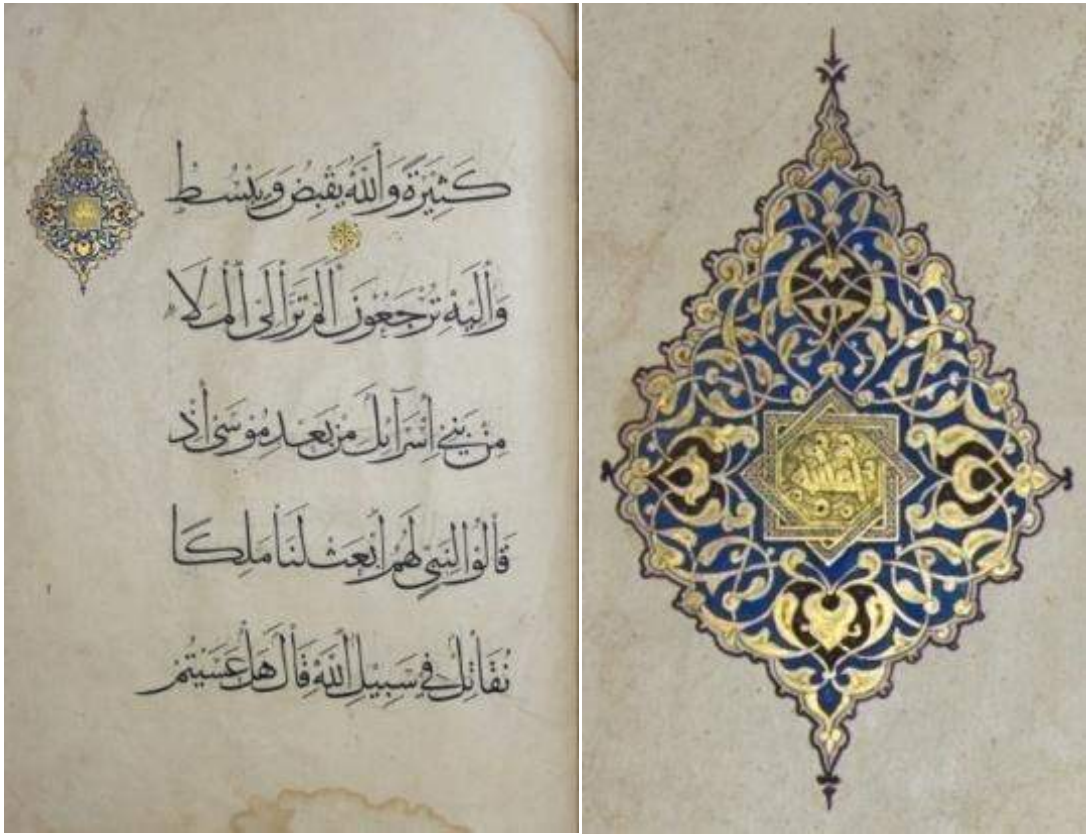 كَثِيرَةً وَاللَّهُ يَقْبِضُ وَيَبْسُطُ
وَإِلَيْهِ تُرْجَعُونَ أَلَمْ تَرَ إِلَى الْمَلَإِ
مِنْ بَنِي إِسْرَآئِلَ مِنْ بَعْدِ مُوسَى إِذْ
قَالُوا لِنَبِيٍّ لَهُمُ ابْعَثْ لَنَا مَلِكًا
نُقَاتِلْ فِي سَبِيلِ اللَّهِ قَالَ هَلْ عَسَيْتُمْ